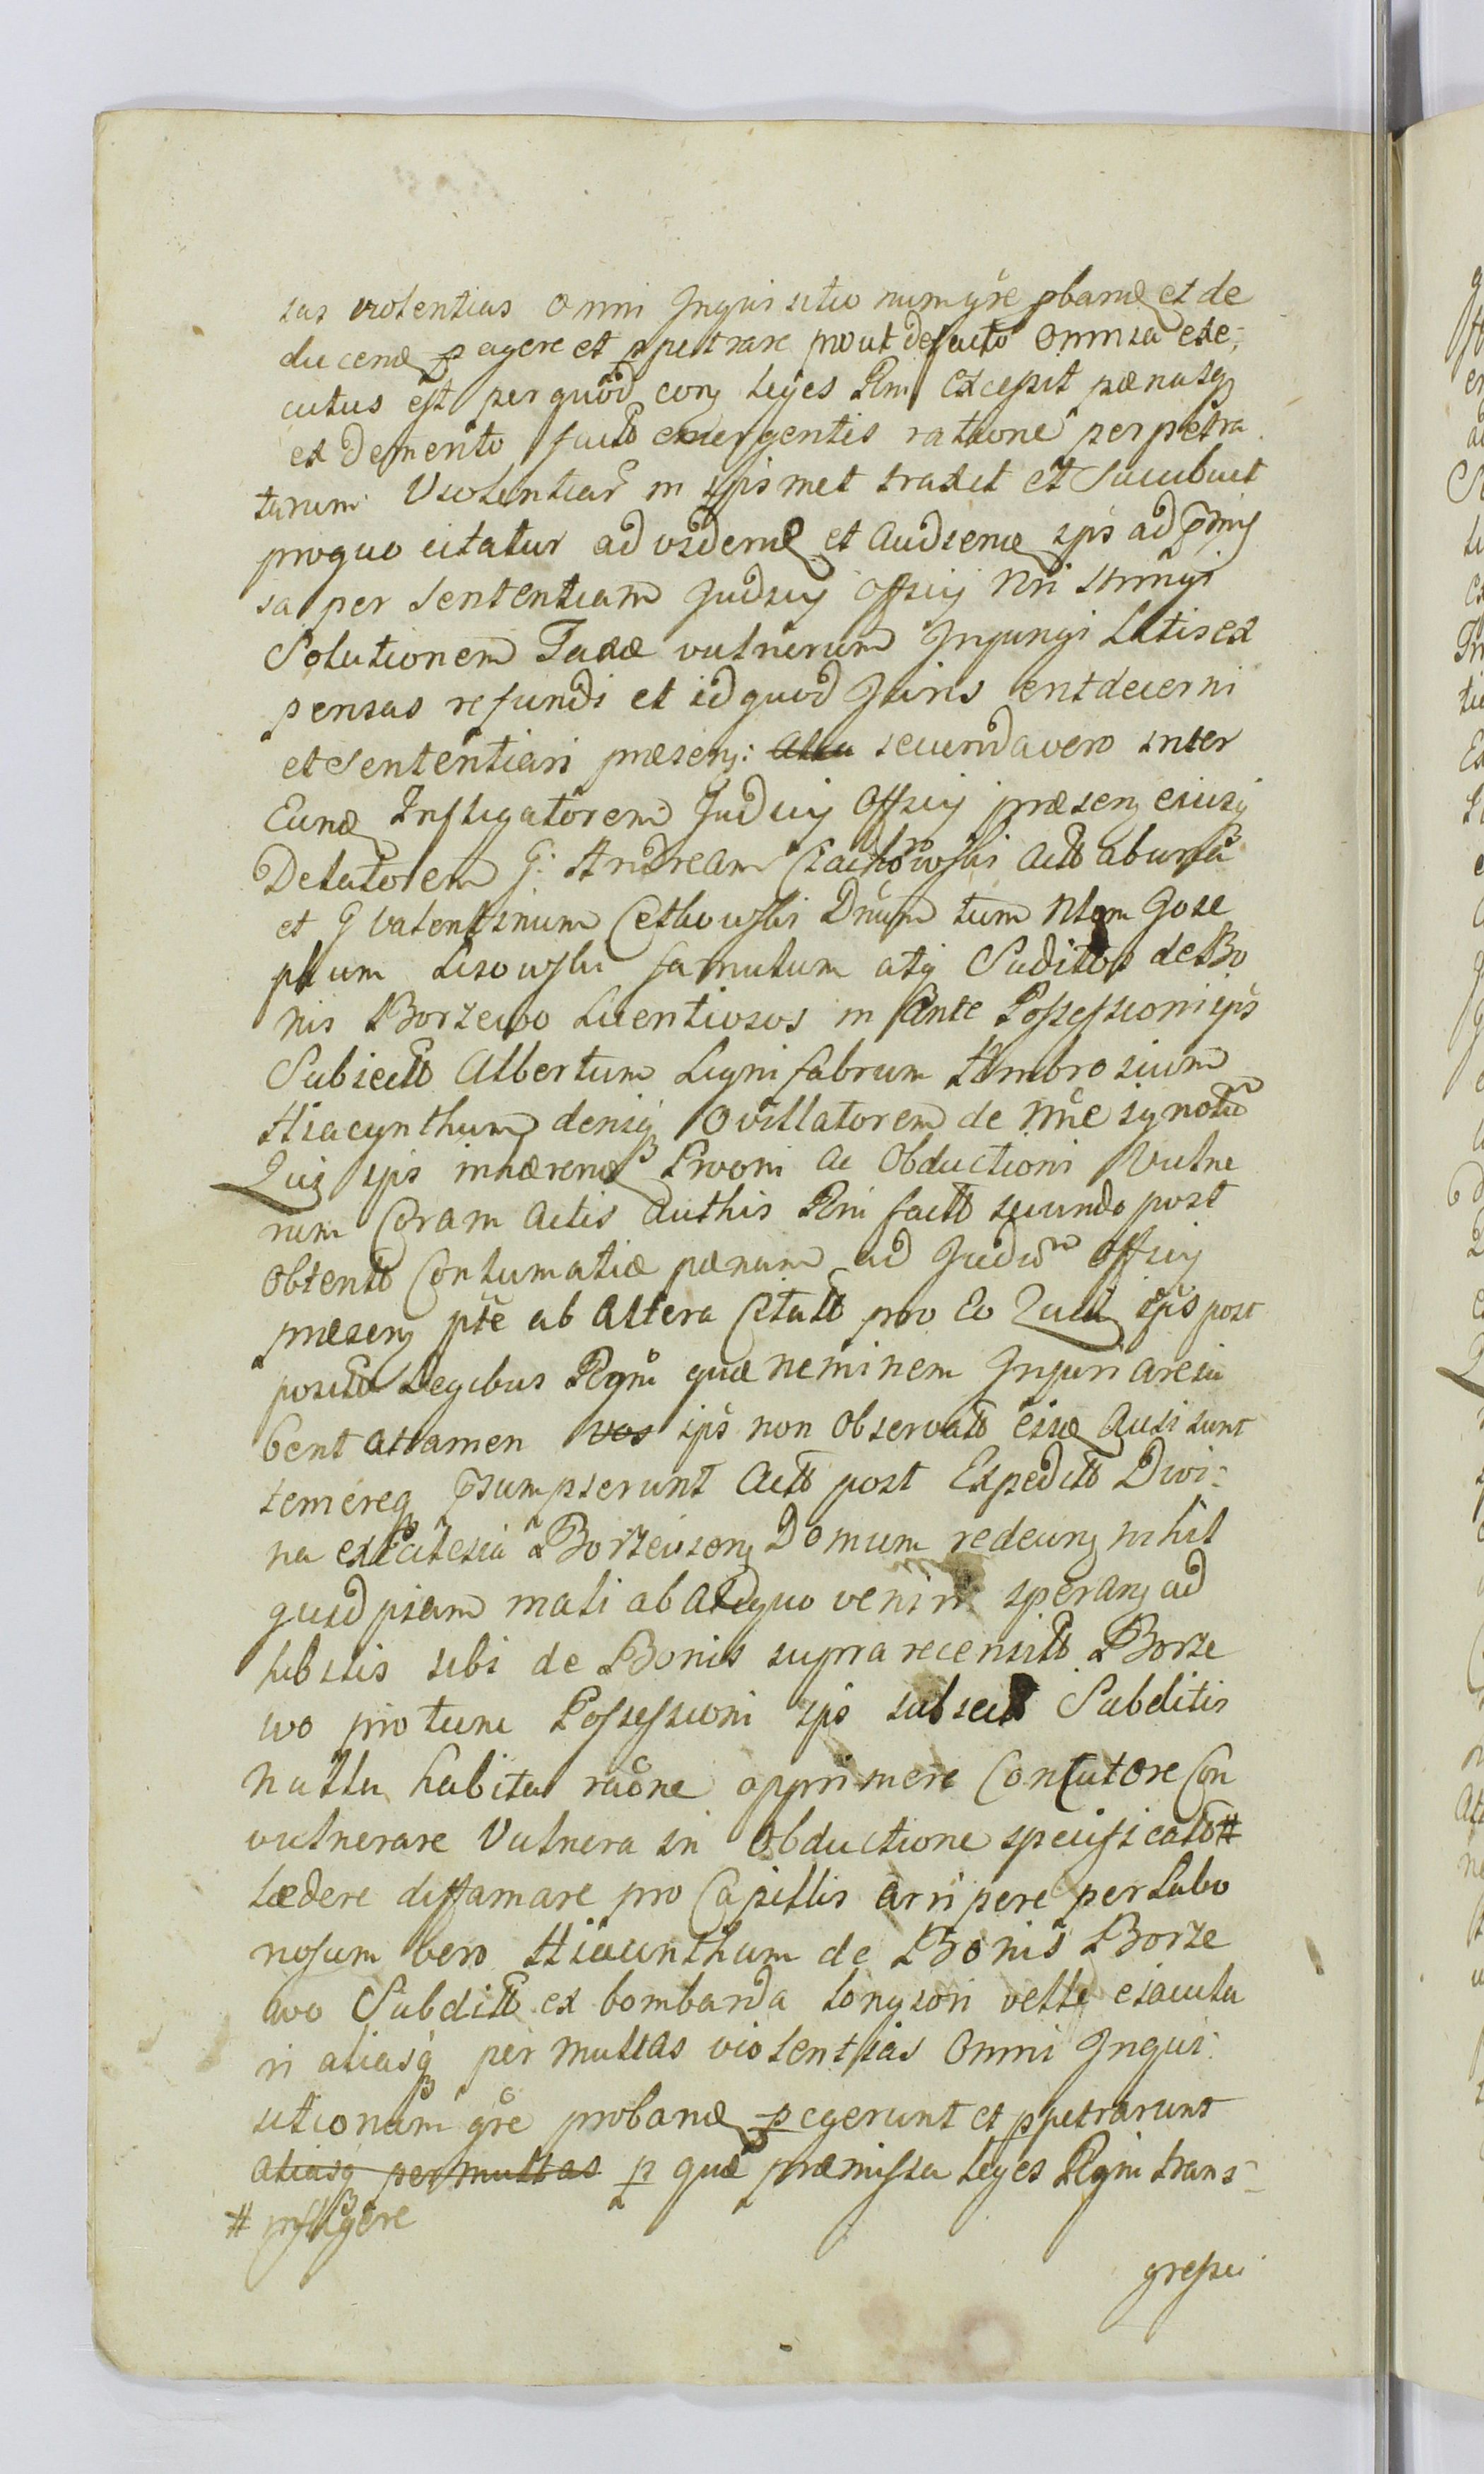 sas violentias omni Inquisitionum gñre pbané et de
ducené p agere et ppetrare prout defacto omnia exe,
cutus est per quod con leges Rni excessit pœnasq
ex demerito facto emergentis ratione perpetra
tarum Violentiar in ipsmet traxit et Succubuit
proquo citatur ad videnđ et audienđ ips ad pmis
sa per Sententiam Judicij officij Nri stringi
Solutionem Taxæ vulnerum Injungi Litis ex
pensas refundi et id quod Juris erit decerni
et Sententiari præsen: secunda vero inter
Eund Instigatorem Judicij Officij præsen eiusq
Delatorem G: Andream Czachowski actt ab una
et G Valentinum Cetkowski Dnum tum Nlem Jose
phum Lisowski famulum atq Suditos de Bo
nis Borzewo Licentiosos in ante Possessioni ips
Subiectt Albertum Lignifabrum Ambrosium
Hiacynthum deniq Ovillatorem de Nne ignotu
Qui ips inhærend Prooni ac Obductioni Vulne
rum Coram Actis Authis Rni factt secundo post
obtentt Contumatiæ pœnam ad Judium Officij
præsen pte ab altera Citatt pro eo Quia ips post
posittis Legibus Regni quæ neminem Injuriare iu
bent attamen vos ips non observatt eisd ausi sunt
temereq psumpserunt Actt post Expeditt Divi:
na ex Ecclesia Borzewien Domum redeun nihil
quidpiam mali ab aliquo venire speran ad
hibitis sibi de Bonis supra recensitt Borze
wo pro tunc Possessioni ips subiectt Subditis
nulla habita raone opprimere Concutere Con
vulnerare Vulnera in Obductione specificatt #
Lædere diffamare pro Capillis arripere per Labo
riosum vero Hiacinthum de Bonis Borze
wo Subditt ex bombarda longiori velle ejacula
ri aliasq per multas violentias omni Inqui:
sitionum gñre proband p egerunt et ppetrarunt
aliasq per multas p quæ præmissa leges Regni trans-
# infligere
gressi